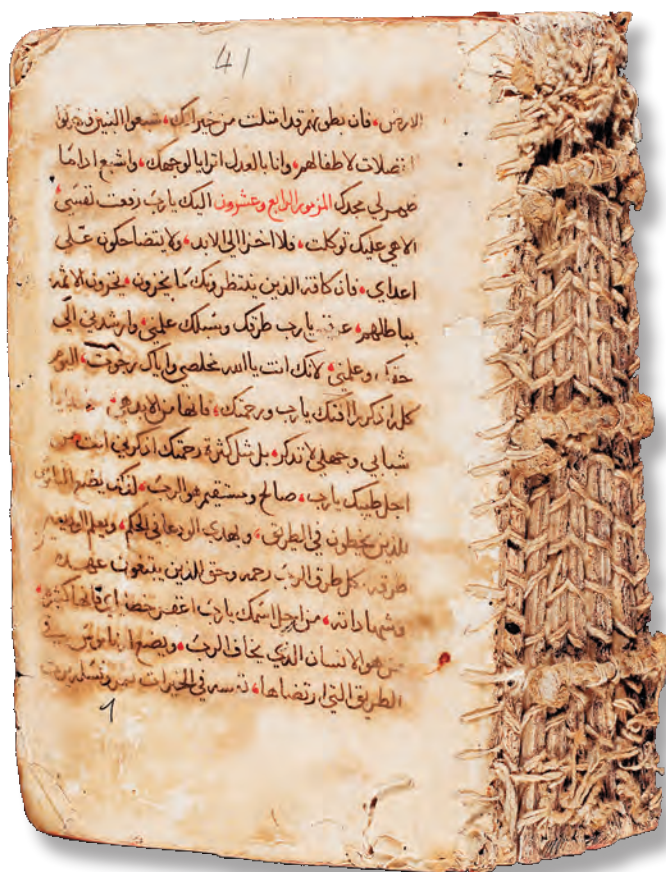 41
الارض، فان بطونهم قد امتلت من خيراتك، شبعوا البنين وتركوا
فضلات لاطفالهم، وانا بالعدل اترايا لوجهك، واشبع اذا ما
ظهر لي مجدك المزمور الرابع وعشرون اليك يارب رفعت نفسي
الاهي عليك توكلت، فلا اخزا الى الابد، ولا يتضاحكون علي
اعداي، فان كافة الذين ينتظرونك ما يخزون، يخزون الاثمه
بباطلهم، يارب طرقك وسبلك علمني، وارشدني الى
حقك، وعلمني، لانك انت ياالله مخلصي واياك رجوت، اليوم
كله اذكر رافتك يارب ورحمتك، فانها من الابد هي،
شبابي وجهلي لا تذكر، بل مثل كثرة رحمتك اذكرني انت من
اجل طيبك يارب، صالح ومستقيم هو الرب، لذلك يضع الناموس
للذين يخطون في الطريق، ويهدي الودعا في الحكم، ويعلم الودعين
طرقه، كل طرق الرب رحمه وحق الذين يبتغون عهده
وشهاداته، من اجل اسمك يارب اغفر خطيايي فانها كثيره،
من هو الانسان الذي يخاف الرب، ويضع له ناموس في
الطريق التي ارتضاها، نفسه في الخيرات ونسله يرث
1